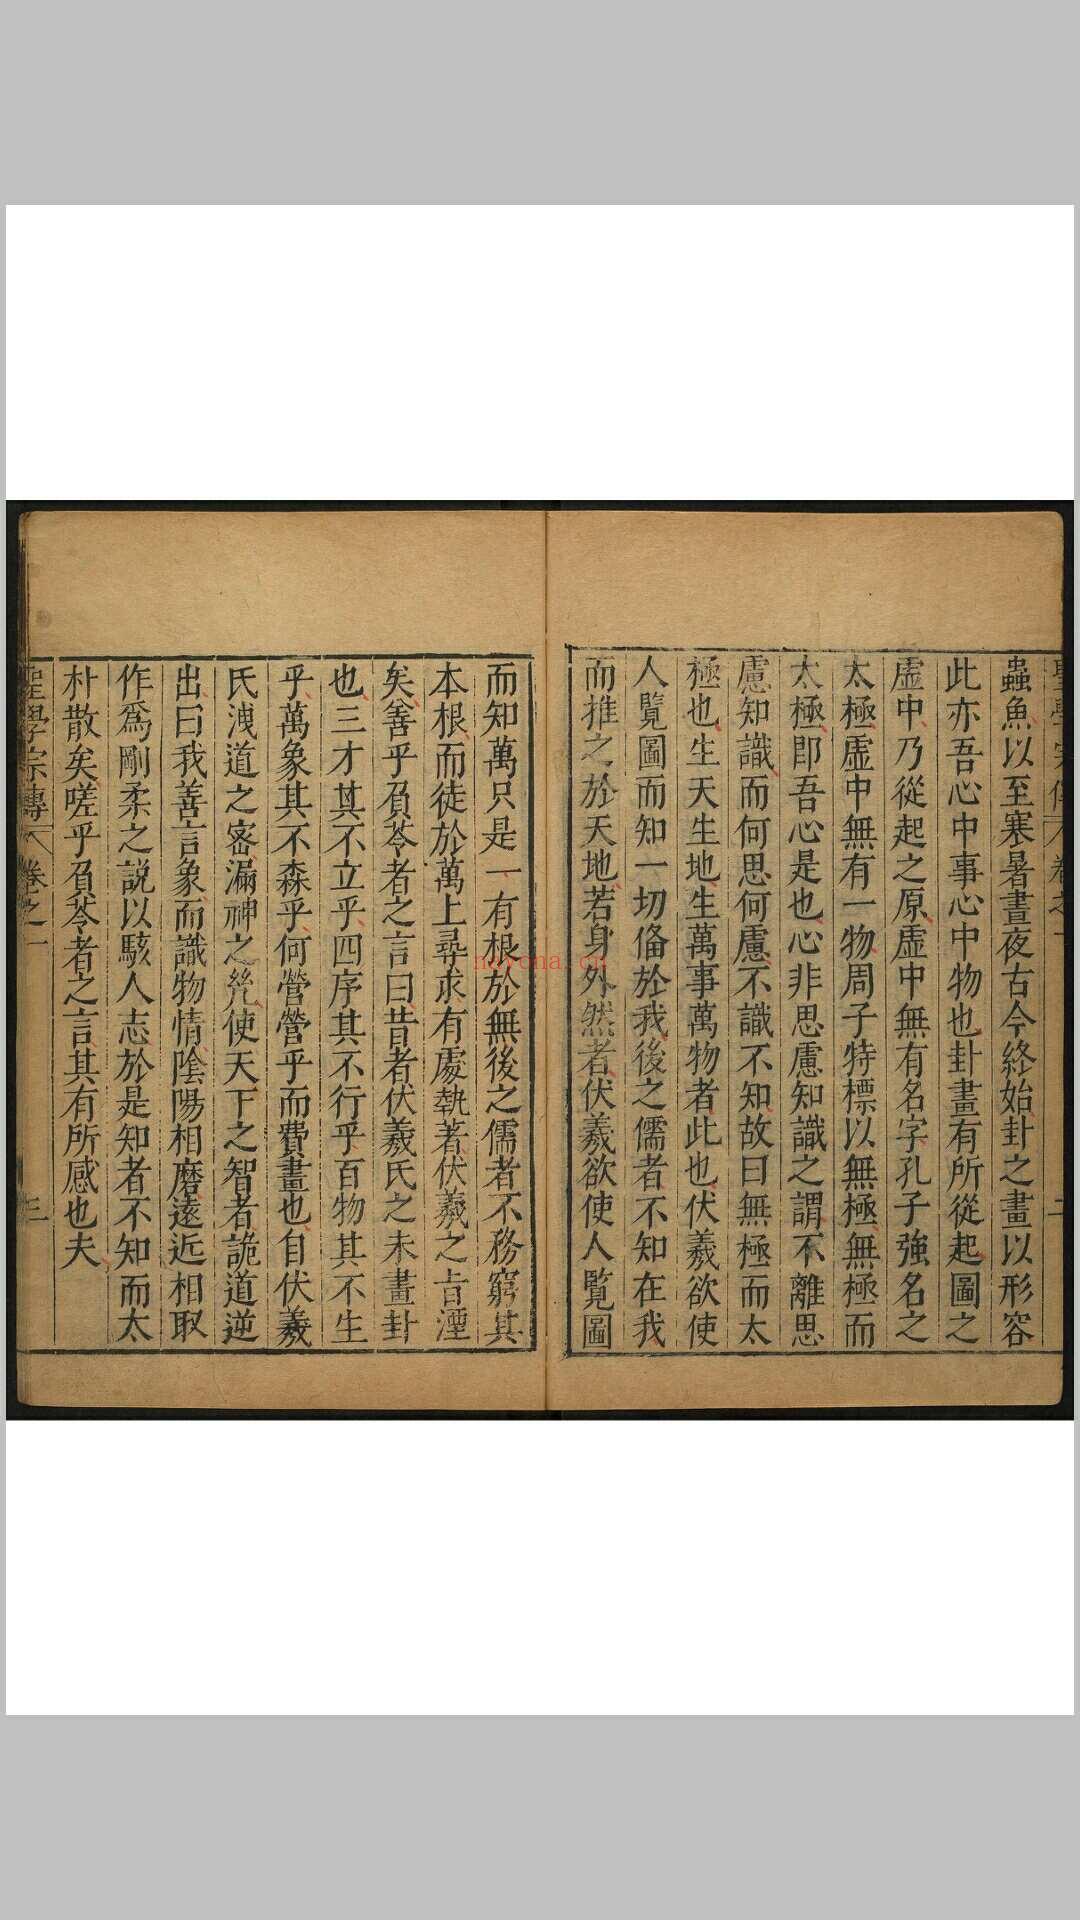 聖學宗傳 卷之一 二
蟲魚以至寒暑晝夜古今終始卦之畫以形容
此亦吾心中事心中物也卦畫有所從起圖之
虛中乃從起之原虛中無有名字孔子強名之
太極虛中無有一物周子特標以無極無極而
太極卽吾心是也心非思慮知識之謂不離思
慮知識而何思何慮不識不知故曰無極而太
極也生天生地生萬事萬物者此也伏羲欲使
人覽圖而知一切俻於我後之儒者不知在我
而推之於天地若身外然者伏羲欲使人覽圖
而知萬只是一有根於無後之儒者不務窮其
本根而徒於萬上尋求有處執著伏羲之旨湮
矣善乎負苓者之言曰昔者伏羲氏之未畫卦
也三才其不立乎四序其不行乎百物其不生
乎萬象其不森乎何營營乎而費畫也自伏羲
氏洩道之密漏神之幾使天下之智者詭道逆
出曰我善言象而識物情陰陽相磨遠近相取
作爲剛柔之說以駭人志於是知者不知而太
朴散矣嗟乎負苓者之言其有所感也夫
聖學宗傳 卷之一 三
nayona.cn